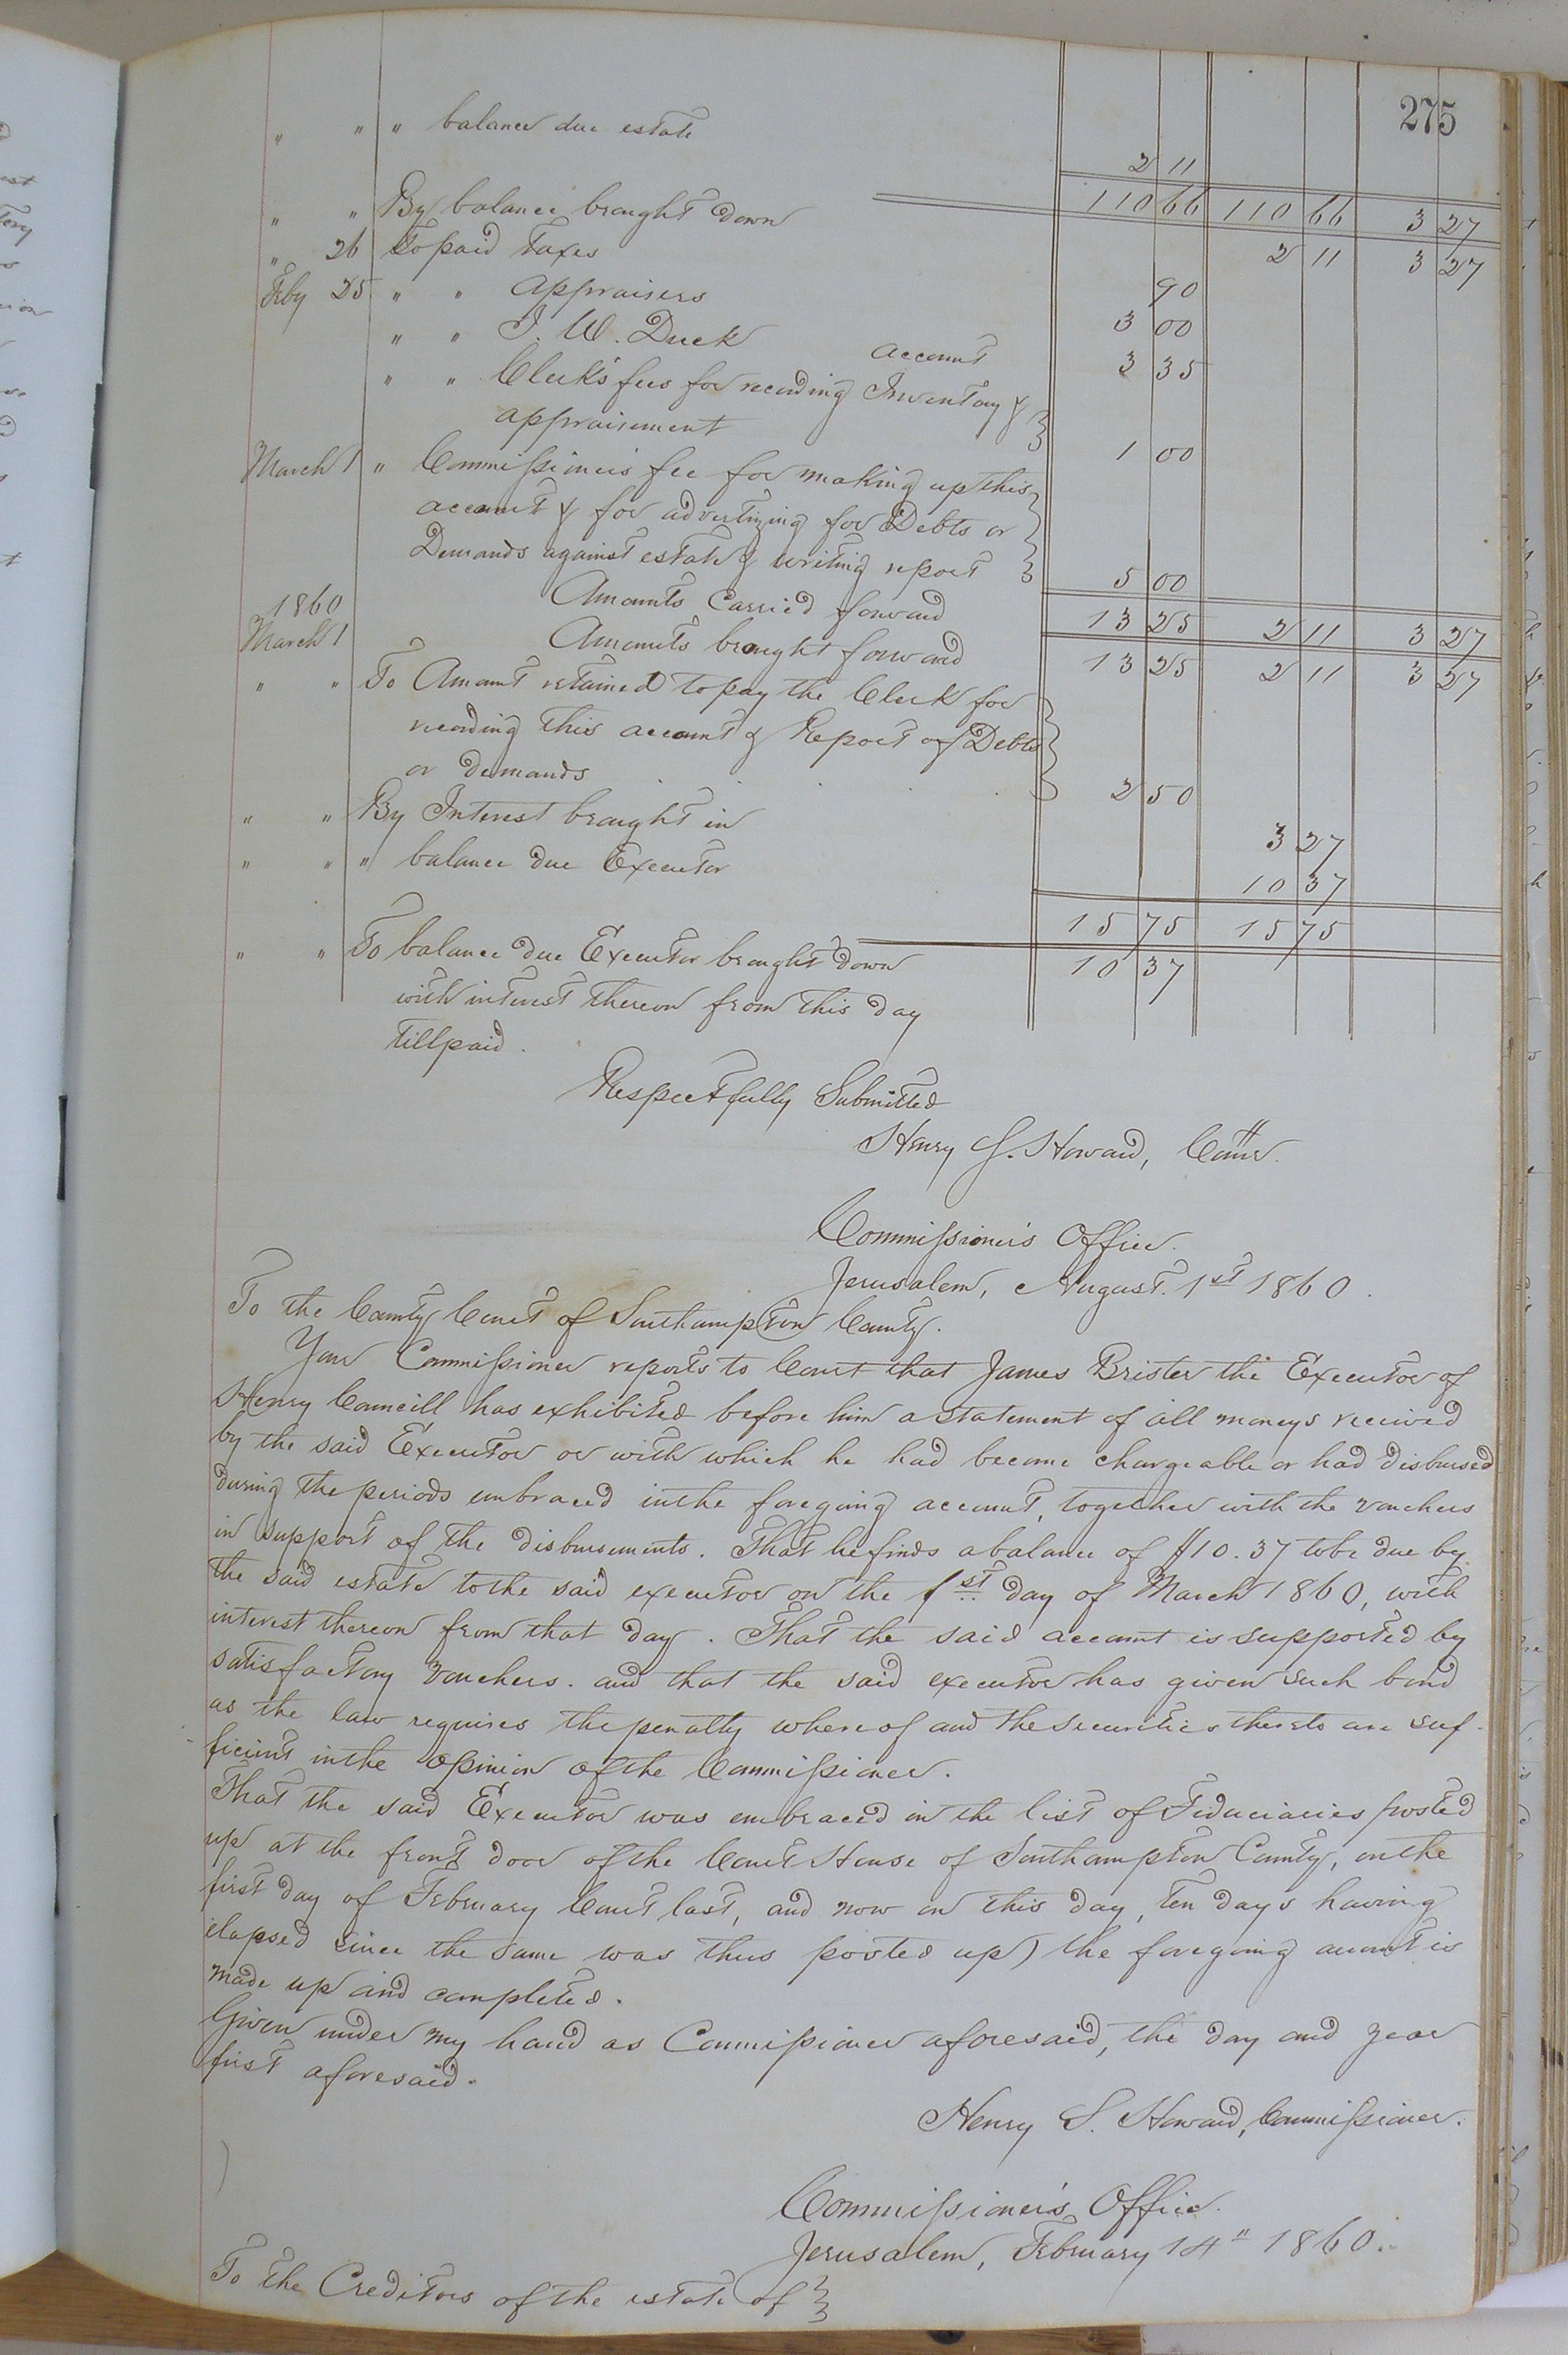 275
" " " balance due estate 2 11
110 66 110 66 3 27
" " By balance brought down 2 11 3 27
" 26 To paid Taxes 90
Feby 25 " " Appraisers 3 00
" " J. W. Duck account 3 35
" " Clerk's fees for recording Inventory &
appraisement 1 00
March 1 " Commissioner's fee for making up this
account & for advertizing for Debts or
Demands against estate & writing report 5 00
Amounts Carried forward 13 25 2 11 3 27
1860
March 1 Amounts brought forward 13 25 2 11 3 27
" " To Amount retained to pay the Clerk for
recording this account & Report of Debts
or demands 2 50
" " By Interest brought in 3 27
" " " balance due Executor 10 37
15 75 15 75
" " To balance due Executor brought down 10 37
with interest thereon from this day
till paid.
Respectfully Submitted
Henry S. Howard, Comr.
Commissioner's Office.
Jerusalem, August. 1st 1860.
To the County Court of Southampton County.
Your Commissioner reports to Court that James Brister the Executor of
Henry Councill has exhibited before him a statement of all moneys received
by the said Executor or with which he had become chargeable or had disbursed
during the periods embraced in the foregoing account, together with the vouchers
in support of the disbursements. That he finds a balance of $10.37 to be due by
the said estate to the said executor on the 1st day of March 1860, with
interest thereon from that day. That the said account is supported by
satisfactory vouchers. and that the said executor has given such bond
as the law requires the penalty whereof and the securities thereto are suf-
ficient in the opinion of the Commissioner.
That the said Executor was embraced in the list of Fiduciaries posted
up at the front door of the Court House of Southampton County, on the
first day of February Court last, and now on this day, ten days having
elapsed since the same was thus posted up) the foregoing account is
made up and completed.
Given under my hand as Commissioner aforesaid, the day and year
first aforesaid.
Henry S. Howard, Commissioner.
Commissioner's Office.
Jerusalem, February 14" 1860.
To the Creditors of the estate of